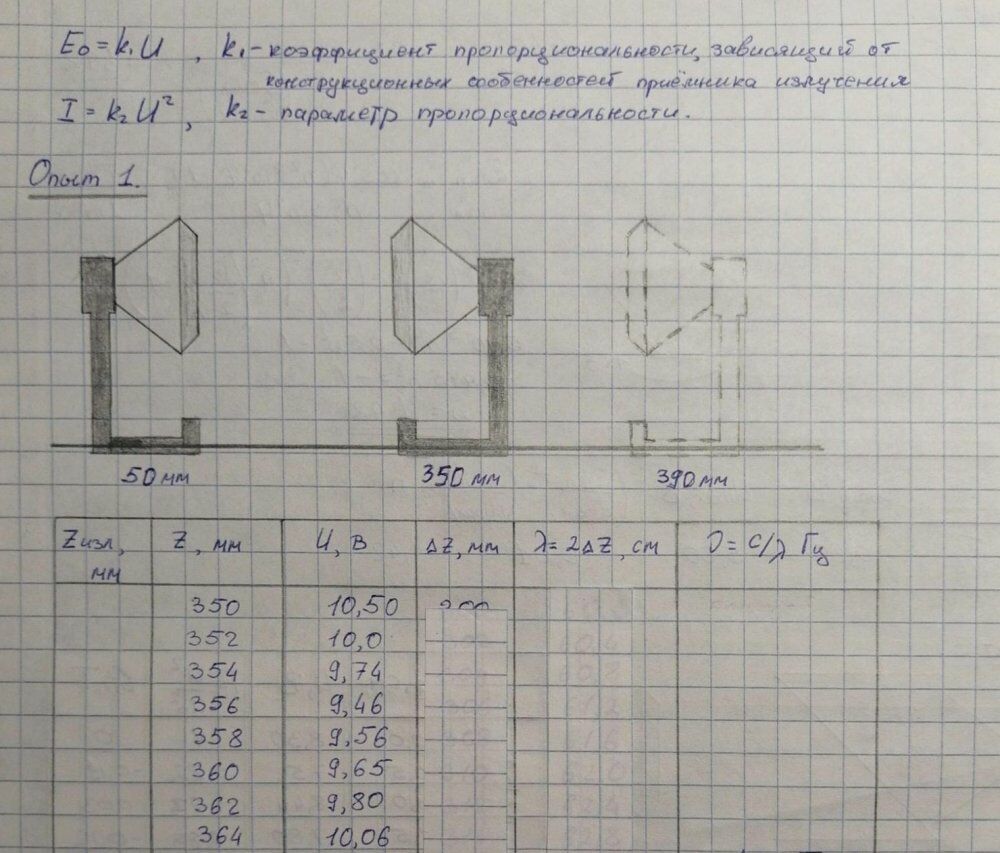 E₀ = k₁U , k₁ - коэффициент пропорциональности, зависящий от
конструкционных особенностей приёмника излучения
I = k₂U², k₂ - параметр пропорциональности.
Опыт 1.
50 мм 350 мм 390 мм
Zизл, мм Z, мм U, В ΔZ, мм λ = 2ΔZ, см ν = c/λ Гц
350 10,50
352 10,0
354 9,74
356 9,46
358 9,56
360 9,65
362 9,80
364 10,06